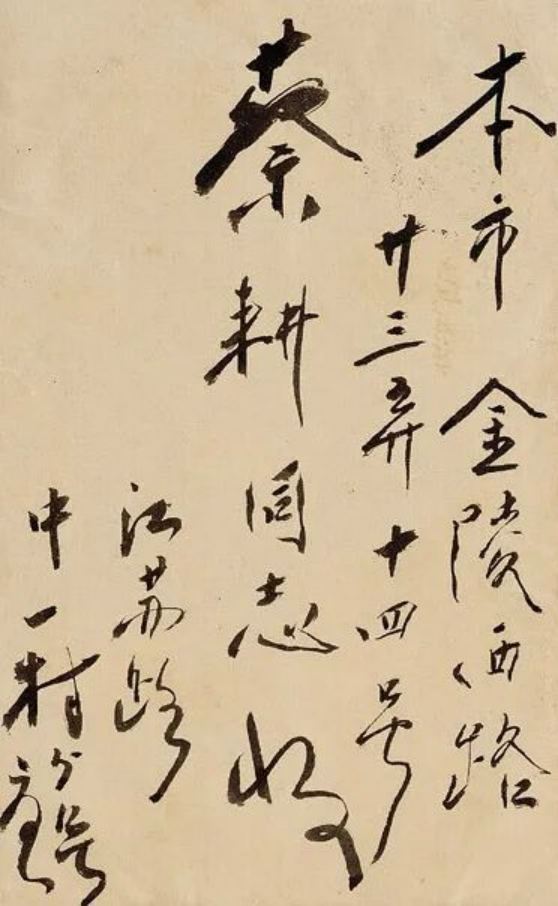 本市金陵西路
廿三弄十四号
蔡耕同志收
江苏路
中一村